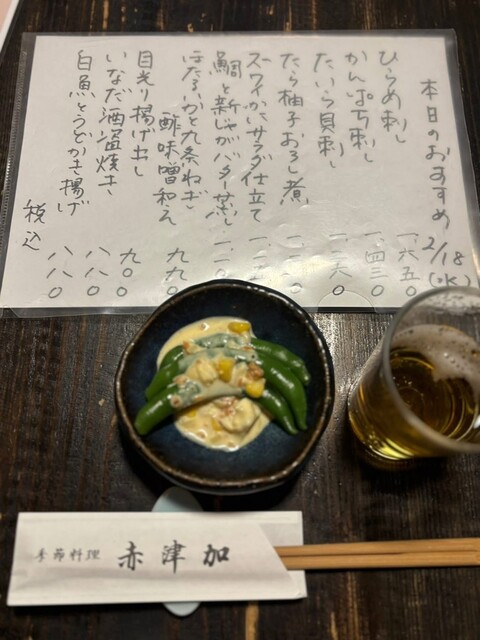 本日のおすすめ 2/18(水)
ひらめ刺し 一.六五〇
かんぱち刺し 一.四三〇
たいら貝刺し
たら柚子おろし煮
ズワイかにサラダ仕立て
鯛と新じゃがバター蒸し
ほたるいかと九条ねぎ
酢味噌和え 九九〇
目光り揚げ出し 九〇〇
いなだ酒盗焼き 八八〇
白魚とうどかき揚げ 八八〇
税込
季節料理 赤津加